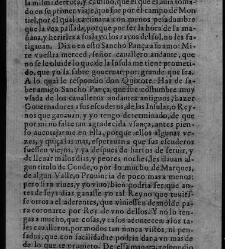 la misma derrota, y camino, que el que el auia toma-
do en su primer viaje, que fue por el campo de Mon-
tiel, por el qual caminaua con menos pesadumbre
que la vez passada, porque por ser la hora de la ma-
ñana, y herirles a soslayo los rayos del sol, no les fa-
tigauan. Dixo en esto Sancho Pança a su amo: Mi-
re vuestra merced, señor cauallero andante, que
no se le oluide lo que de la Insula me tiene prometi-
do, que yo la sabre gouernar, por grande que sea.
A lo qual le respondio don Quixote: Has de sa-
ber amigo Sancho Pança, que fue costumbre muy
vsada de los caualleros andantes antiguos, hazer
Gouernadores a sus escuderos, de las Insulas, o Rey
nos que ganauan, y yo tengo determinado, de que
por mi no falte tan agradecida vsança, antes pien-
so auentajarme en ella, porque ellos algunas ve-
zes, y quiça las mas, esperauan a que sus escuderos
fuessen viejos, y ya despues de hartos de seruir, y
de lleuar malos dias, y peores noches, les dauan al-
gun titulo de Conde, o por lo mucho de Marques,
de algun Valle, o Prouincia de poco mas a menos:
pero si tu viues, y yo viuo, bien podria ser que an-
tes de seys dias ganasse yo tal Reyno, que tuuiesse
otros a el aderentes, que viniessen de molde pa-
ra coronarte por Rey de vno dellos. Y no lo ten-
gas a mucho, que cosas, y casos acontecen a los ta-
les caualleros, por modos tan nunca vistos, ni pen-
sados, que con facilidad te podria dar aun mas de
lo que te prometo. De essa manera, respondio